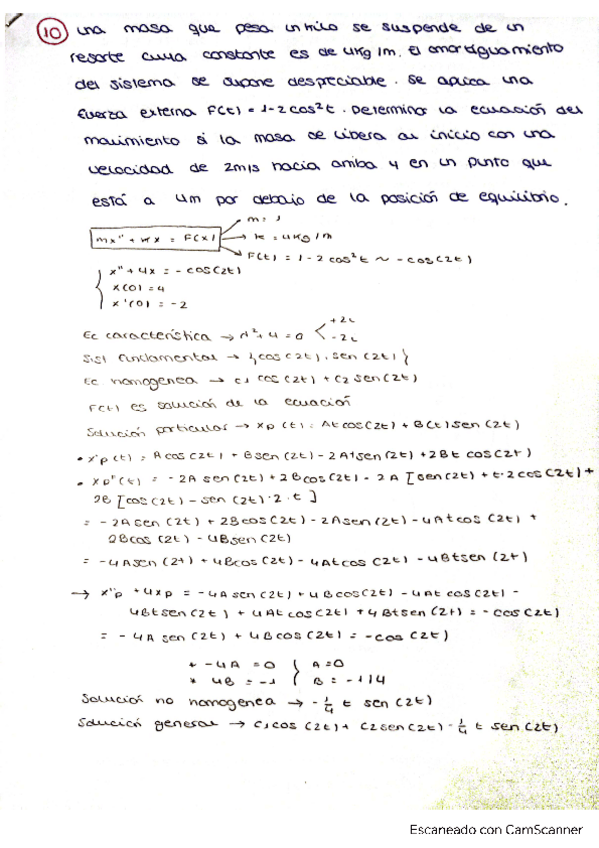 10 una masa que pesa un kilo se suspende de un
resorte cuya constante es de 4Kg/m. El amortiguamiento
del sistema se supone despreciable. Se aplica una
fuerza externa F(t) = 1-2cos²t. Determina la ecuación del
movimiento si la masa se libera al inicio con una
velocidad de 2m/s hacia arriba y en un punto que
está a 4m por debajo de la posición de equilibrio.
m = 1
mx'' + kx = F(x) → k = 4Kg/m
F(t) = 1-2cos²t ~ -cos(2t)
x'' + 4x = -cos(2t)
x(0) = 4
x'(0) = -2
Ec característica → r² + 4 = 0 +2i
-2i
Sist fundamental → {cos(2t), sen(2t)}
Ec homogenea → c1 cos(2t) + c2 sen(2t)
F(t) es solución de la ecuación
Solución particular → xp(t) = At cos(2t) + B(t) sen(2t)
• x'p(t) = A cos(2t) + B sen(2t) - 2At sen(2t) + 2Bt cos(2t)
• xp''(t) = -2A sen(2t) + 2B cos(2t) - 2A [sen(2t) + t·2cos(2t)] +
2B [cos(2t) - sen(2t)·2·t]
= -2A sen(2t) + 2B cos(2t) - 2A sen(2t) - 4At cos(2t) +
2B cos(2t) - 4B sen(2t)
= -4A sen(2t) + 4B cos(2t) - 4At cos(2t) - 4Bt sen(2t)
→ x''p + 4xp = -4A sen(2t) + 4B cos(2t) - 4At cos(2t) -
4Bt sen(2t) + 4At cos(2t) + 4Bt sen(2t) = -cos(2t)
= -4A sen(2t) + 4B cos(2t) = -cos(2t)
* -4A = 0 } A = 0
* 4B = -1 } B = -1/4
Solución no homogenea → -1/4 t sen(2t)
Solución general → c1 cos(2t) + c2 sen(2t) - 1/4 t sen(2t)
Escaneado con CamScanner